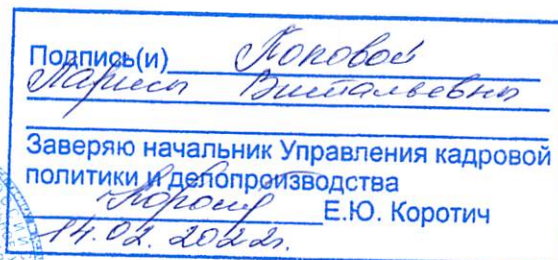 Подпись(и) Поповой
Ларисы Витальевны
Заверяю начальник Управления кадровой
политики и делопроизводства
Е.Ю. Коротич
14.02.2022г.